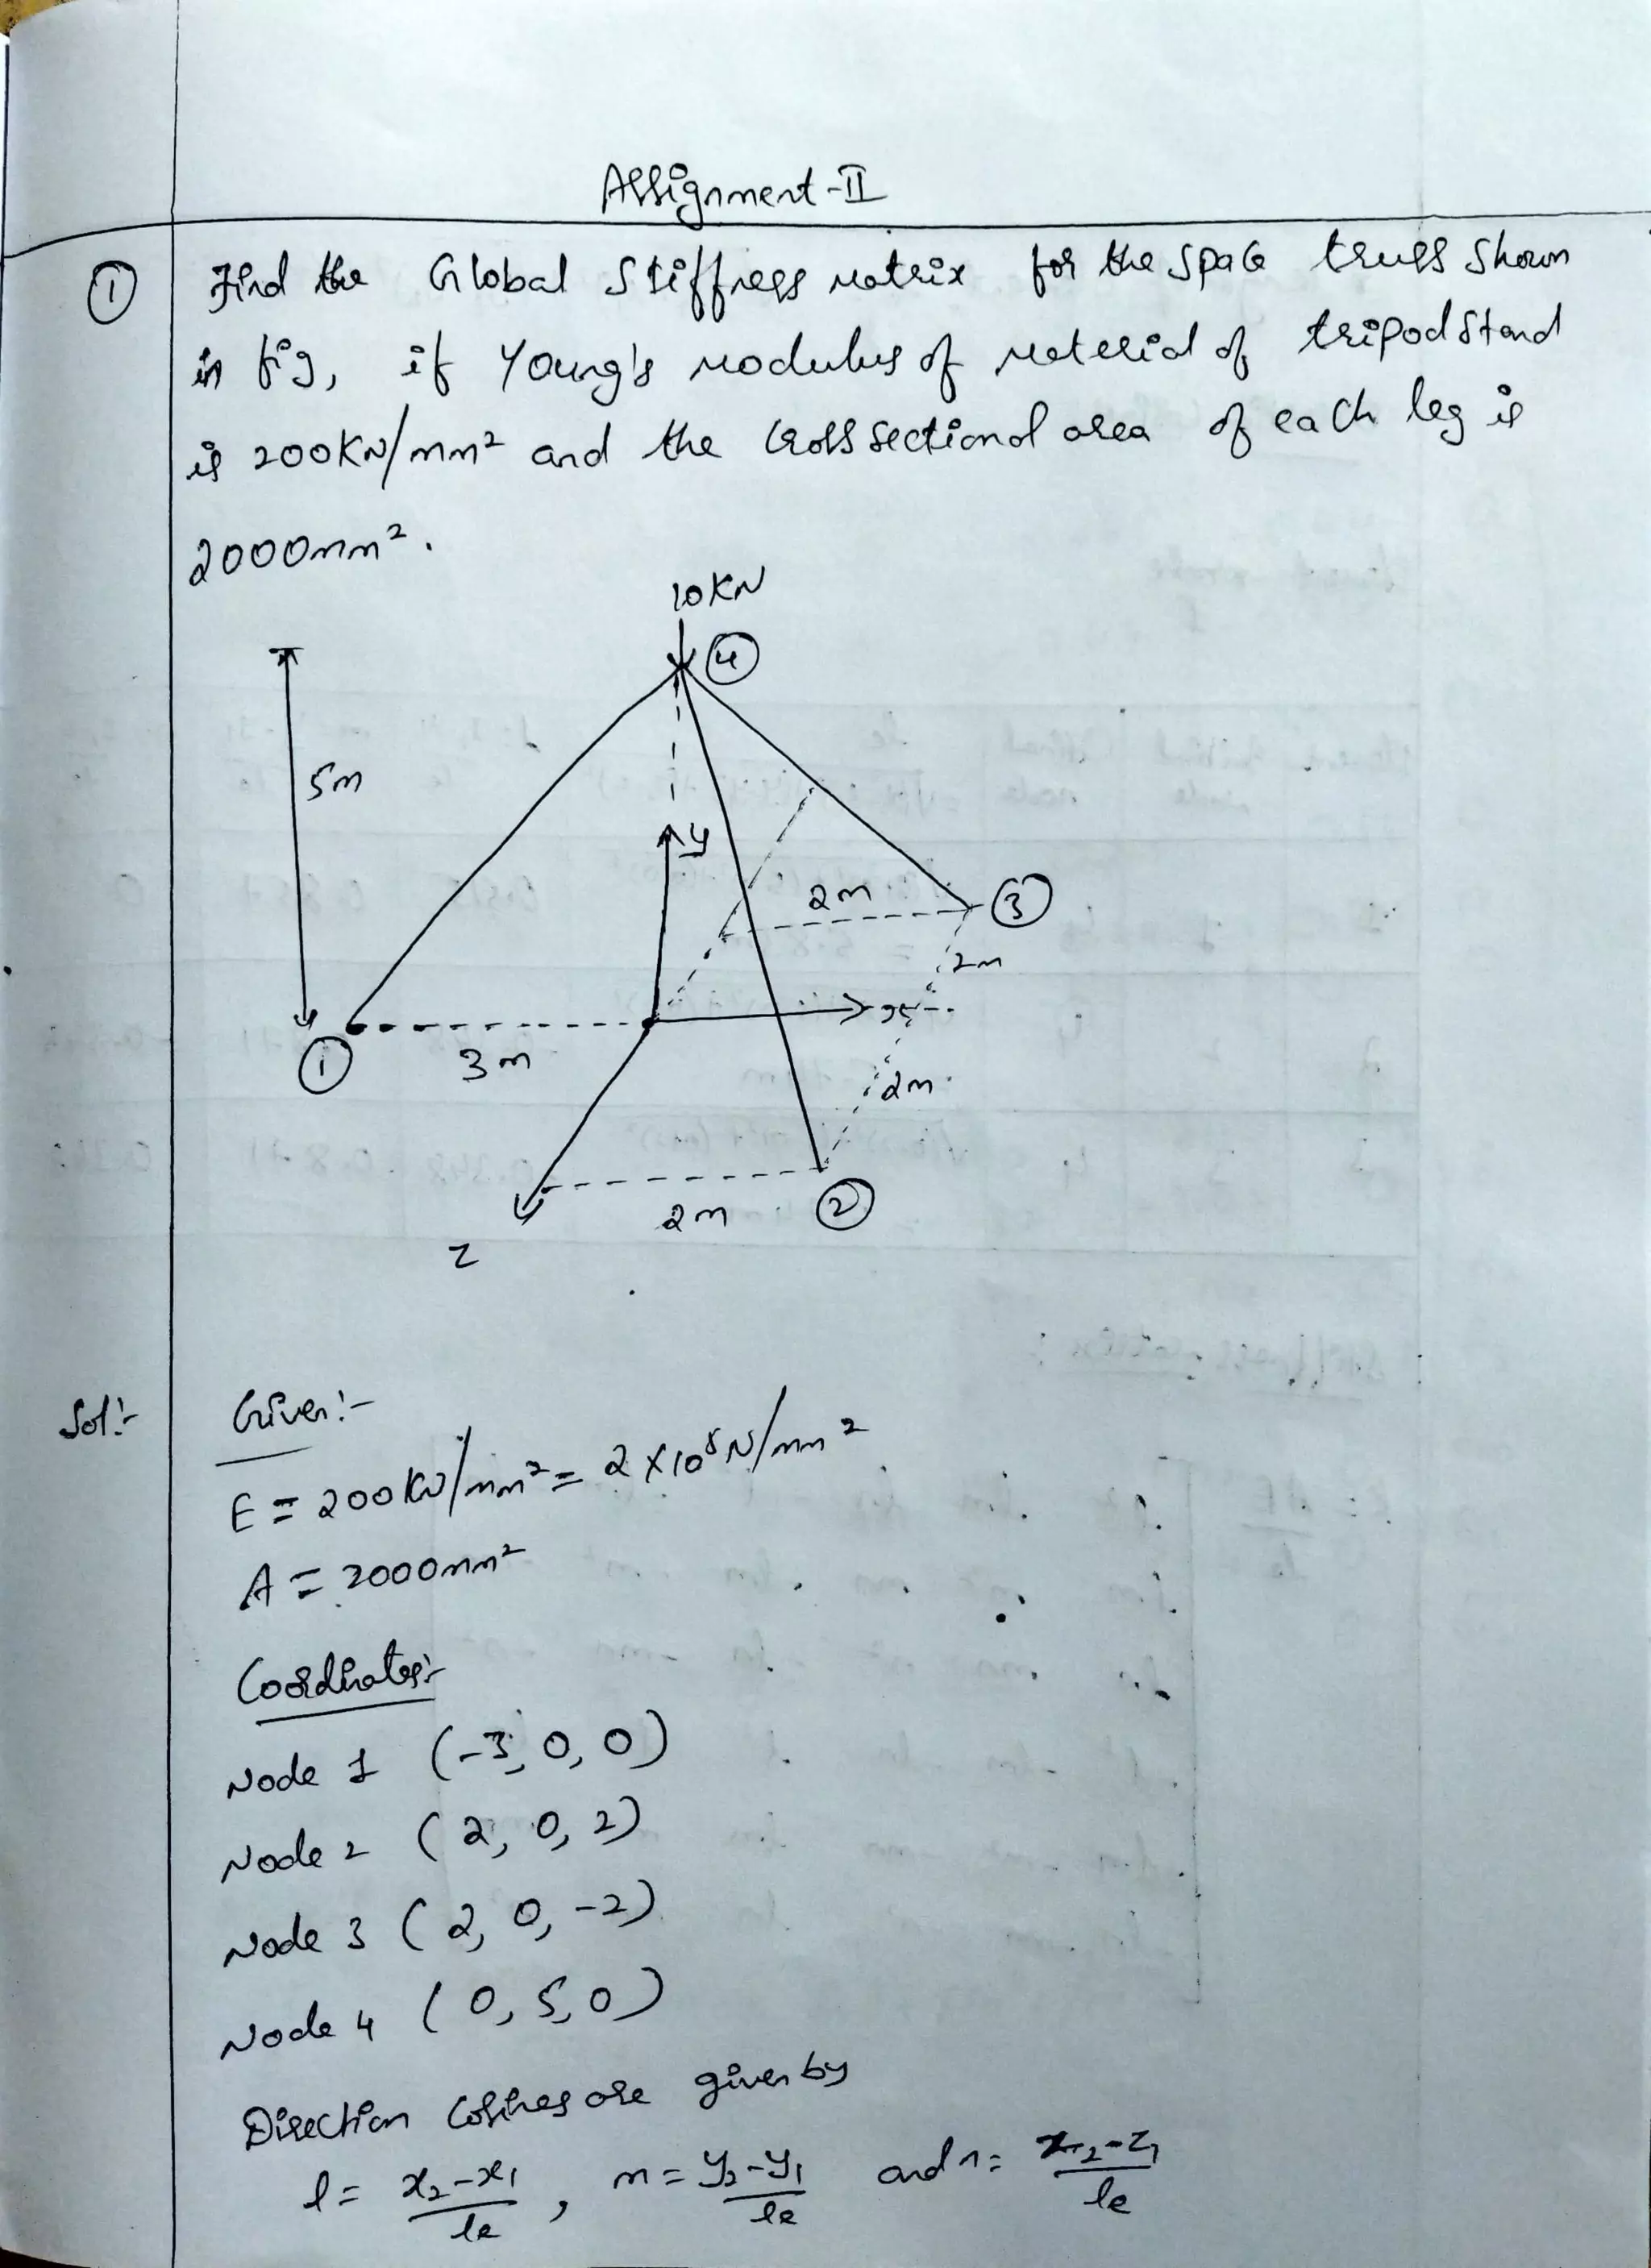 Assignment-II
① Find the Global Stiffness Matrix for the space truss shown
in fig, if Young's Modulus of Material of tripod stand
is 200KN/mm² and the Cross sectional area of each leg is
2000mm².
10KN
④
5m
y
2m
③
2m
x
①
3m
2m
2m
②
z
Sol:- Given:-
E = 200KN/mm² = 2×10⁵N/mm²
A = 2000mm²
Coordinates:-
Node 1 (-3, 0, 0)
Node 2 (2, 0, 2)
Node 3 (2, 0, -2)
Node 4 (0, 5, 0)
Direction Cosines are given by
l = x₂-x₁/le , m = y₂-y₁/le and n = z₂-z₁/le